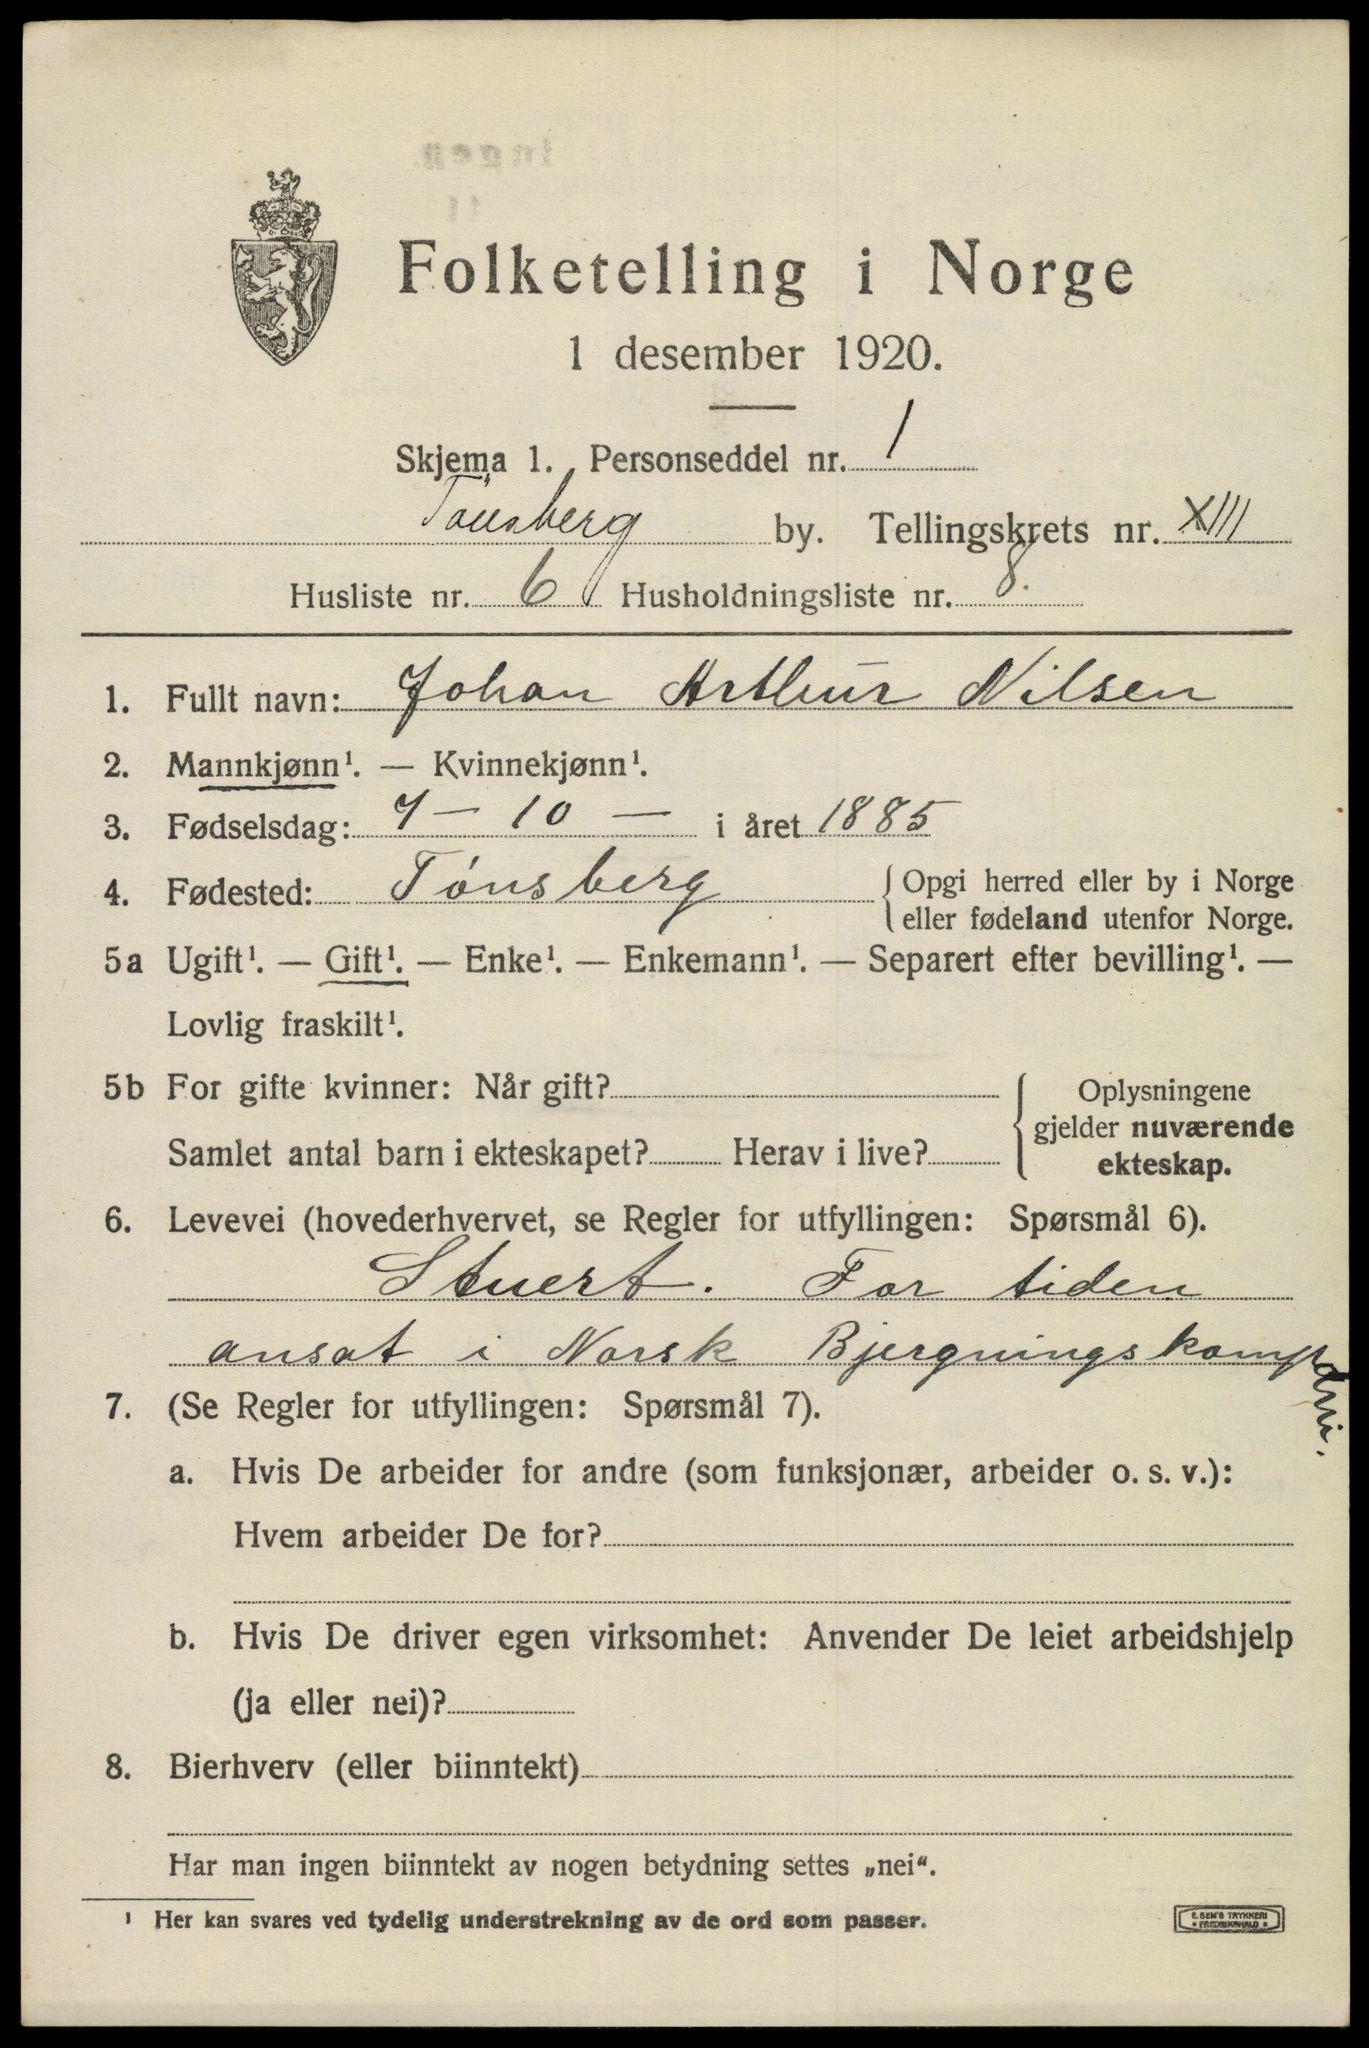 Folketelling i Norge
1 desember 1920.
Skjema 1. Personseddel nr. 1
Tönsberg by. Tellingskrets nr. XIII
Husliste nr. 6 Husholdningsliste nr. 8.
1. Fullt navn: Johan Arthur Nilsen
2. Mannkjønn¹. — Kvinnekjønn¹.
3. Fødselsdag: 7 — 10 — i året 1885
4. Fødested: Tónsberg { Opgi herred eller by i Norge
eller fødeland utenfor Norge.
5a Ugift¹. — Gift¹. — Enke¹. — Enkemann¹. — Separert efter bevilling¹. —
Lovlig fraskilt¹.
5b For gifte kvinner: Når gift?
Samlet antal barn i ekteskapet? Herav i live?
{ Oplysningene
gjelder nuværende
ekteskap.
6. Levevei (hovederhvervet, se Regler for utfyllingen: Spørsmål 6).
Stuert. For tiden
ansat i Norsk Bjergningskompani.
7. (Se Regler for utfyllingen: Spørsmål 7).
a. Hvis De arbeider for andre (som funksjonær, arbeider o. s. v.):
Hvem arbeider De for?
b. Hvis De driver egen virksomhet: Anvender De leiet arbeidshjelp
(ja eller nei)?
8. Bierhverv (eller biinntekt)
Har man ingen biinntekt av nogen betydning settes „nei“.
¹ Her kan svares ved tydelig understrekning av de ord som passer.
E. SEM'S TRYKKERI
• FREDRIKSHALD •